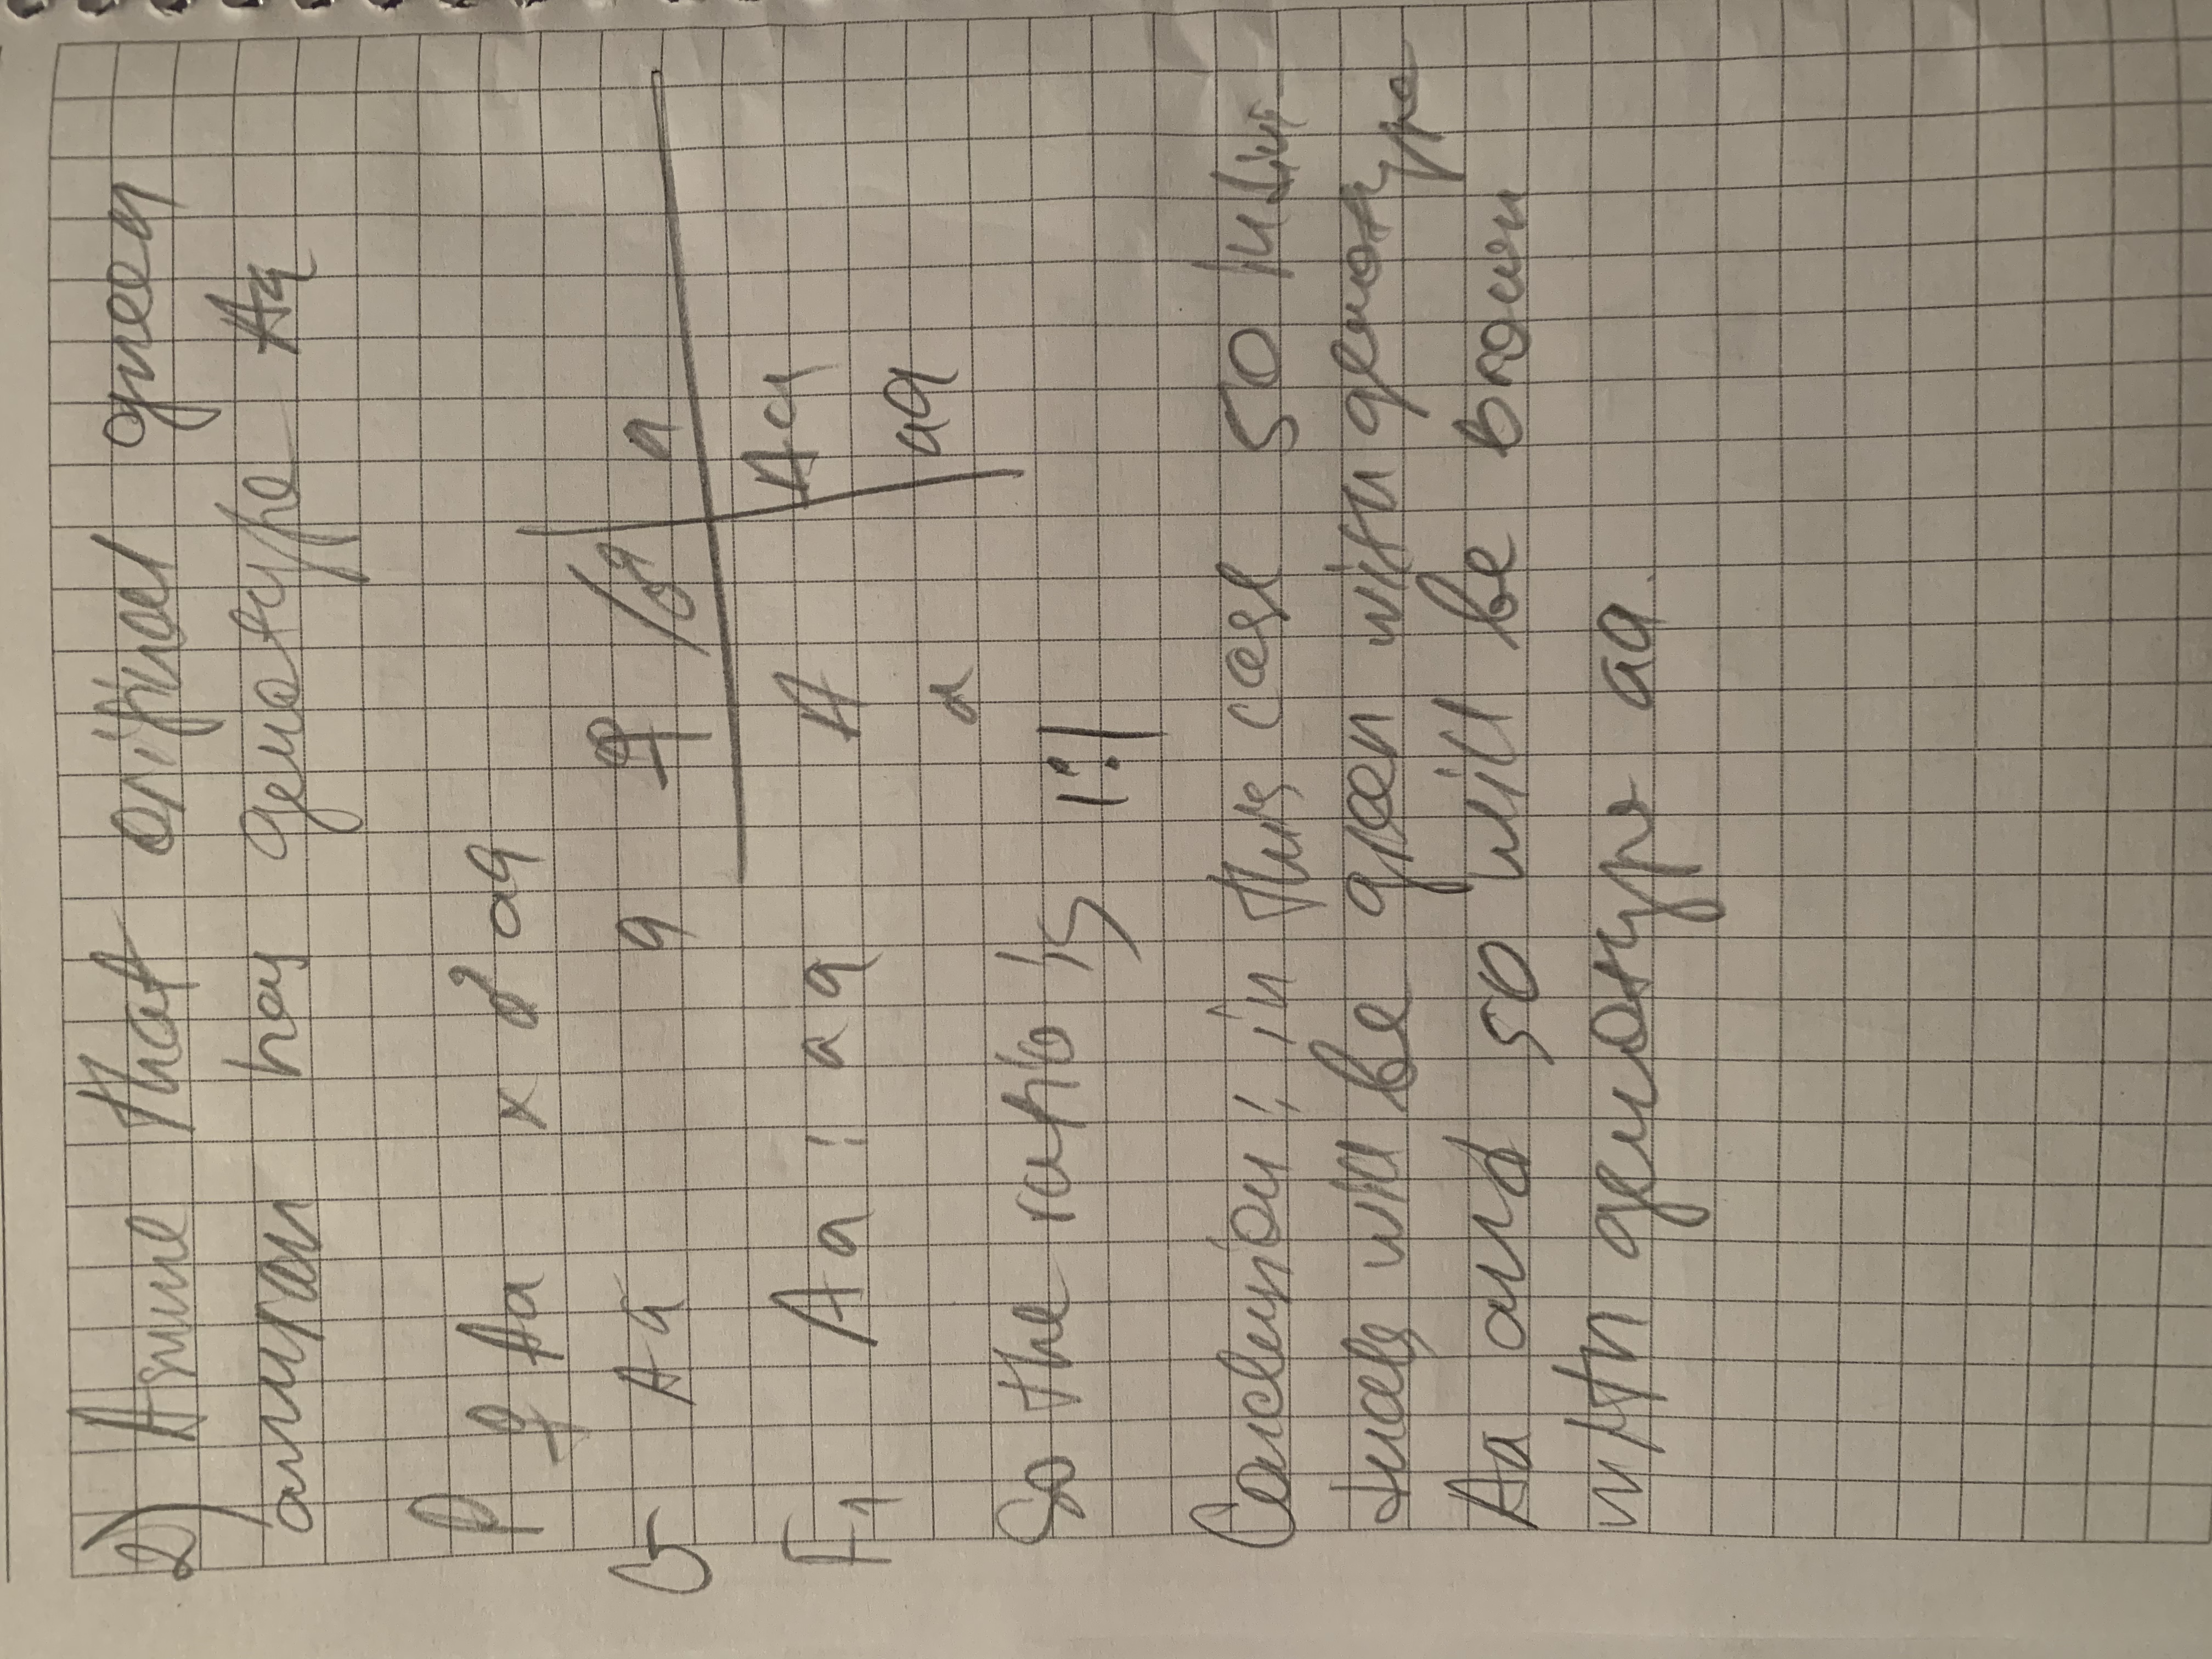 2) Asume that original green
anuran has genotype Aa
P ♀ Aa x ♂ aa
G A a a ♀/♂ a
A Aa
F1 Aa : aa
a aa
So the ratio is 1:1
Conclusion: in this case 50 indivi-
duals will be green with genotype
Aa and 50 will be brown
with genotype aa.